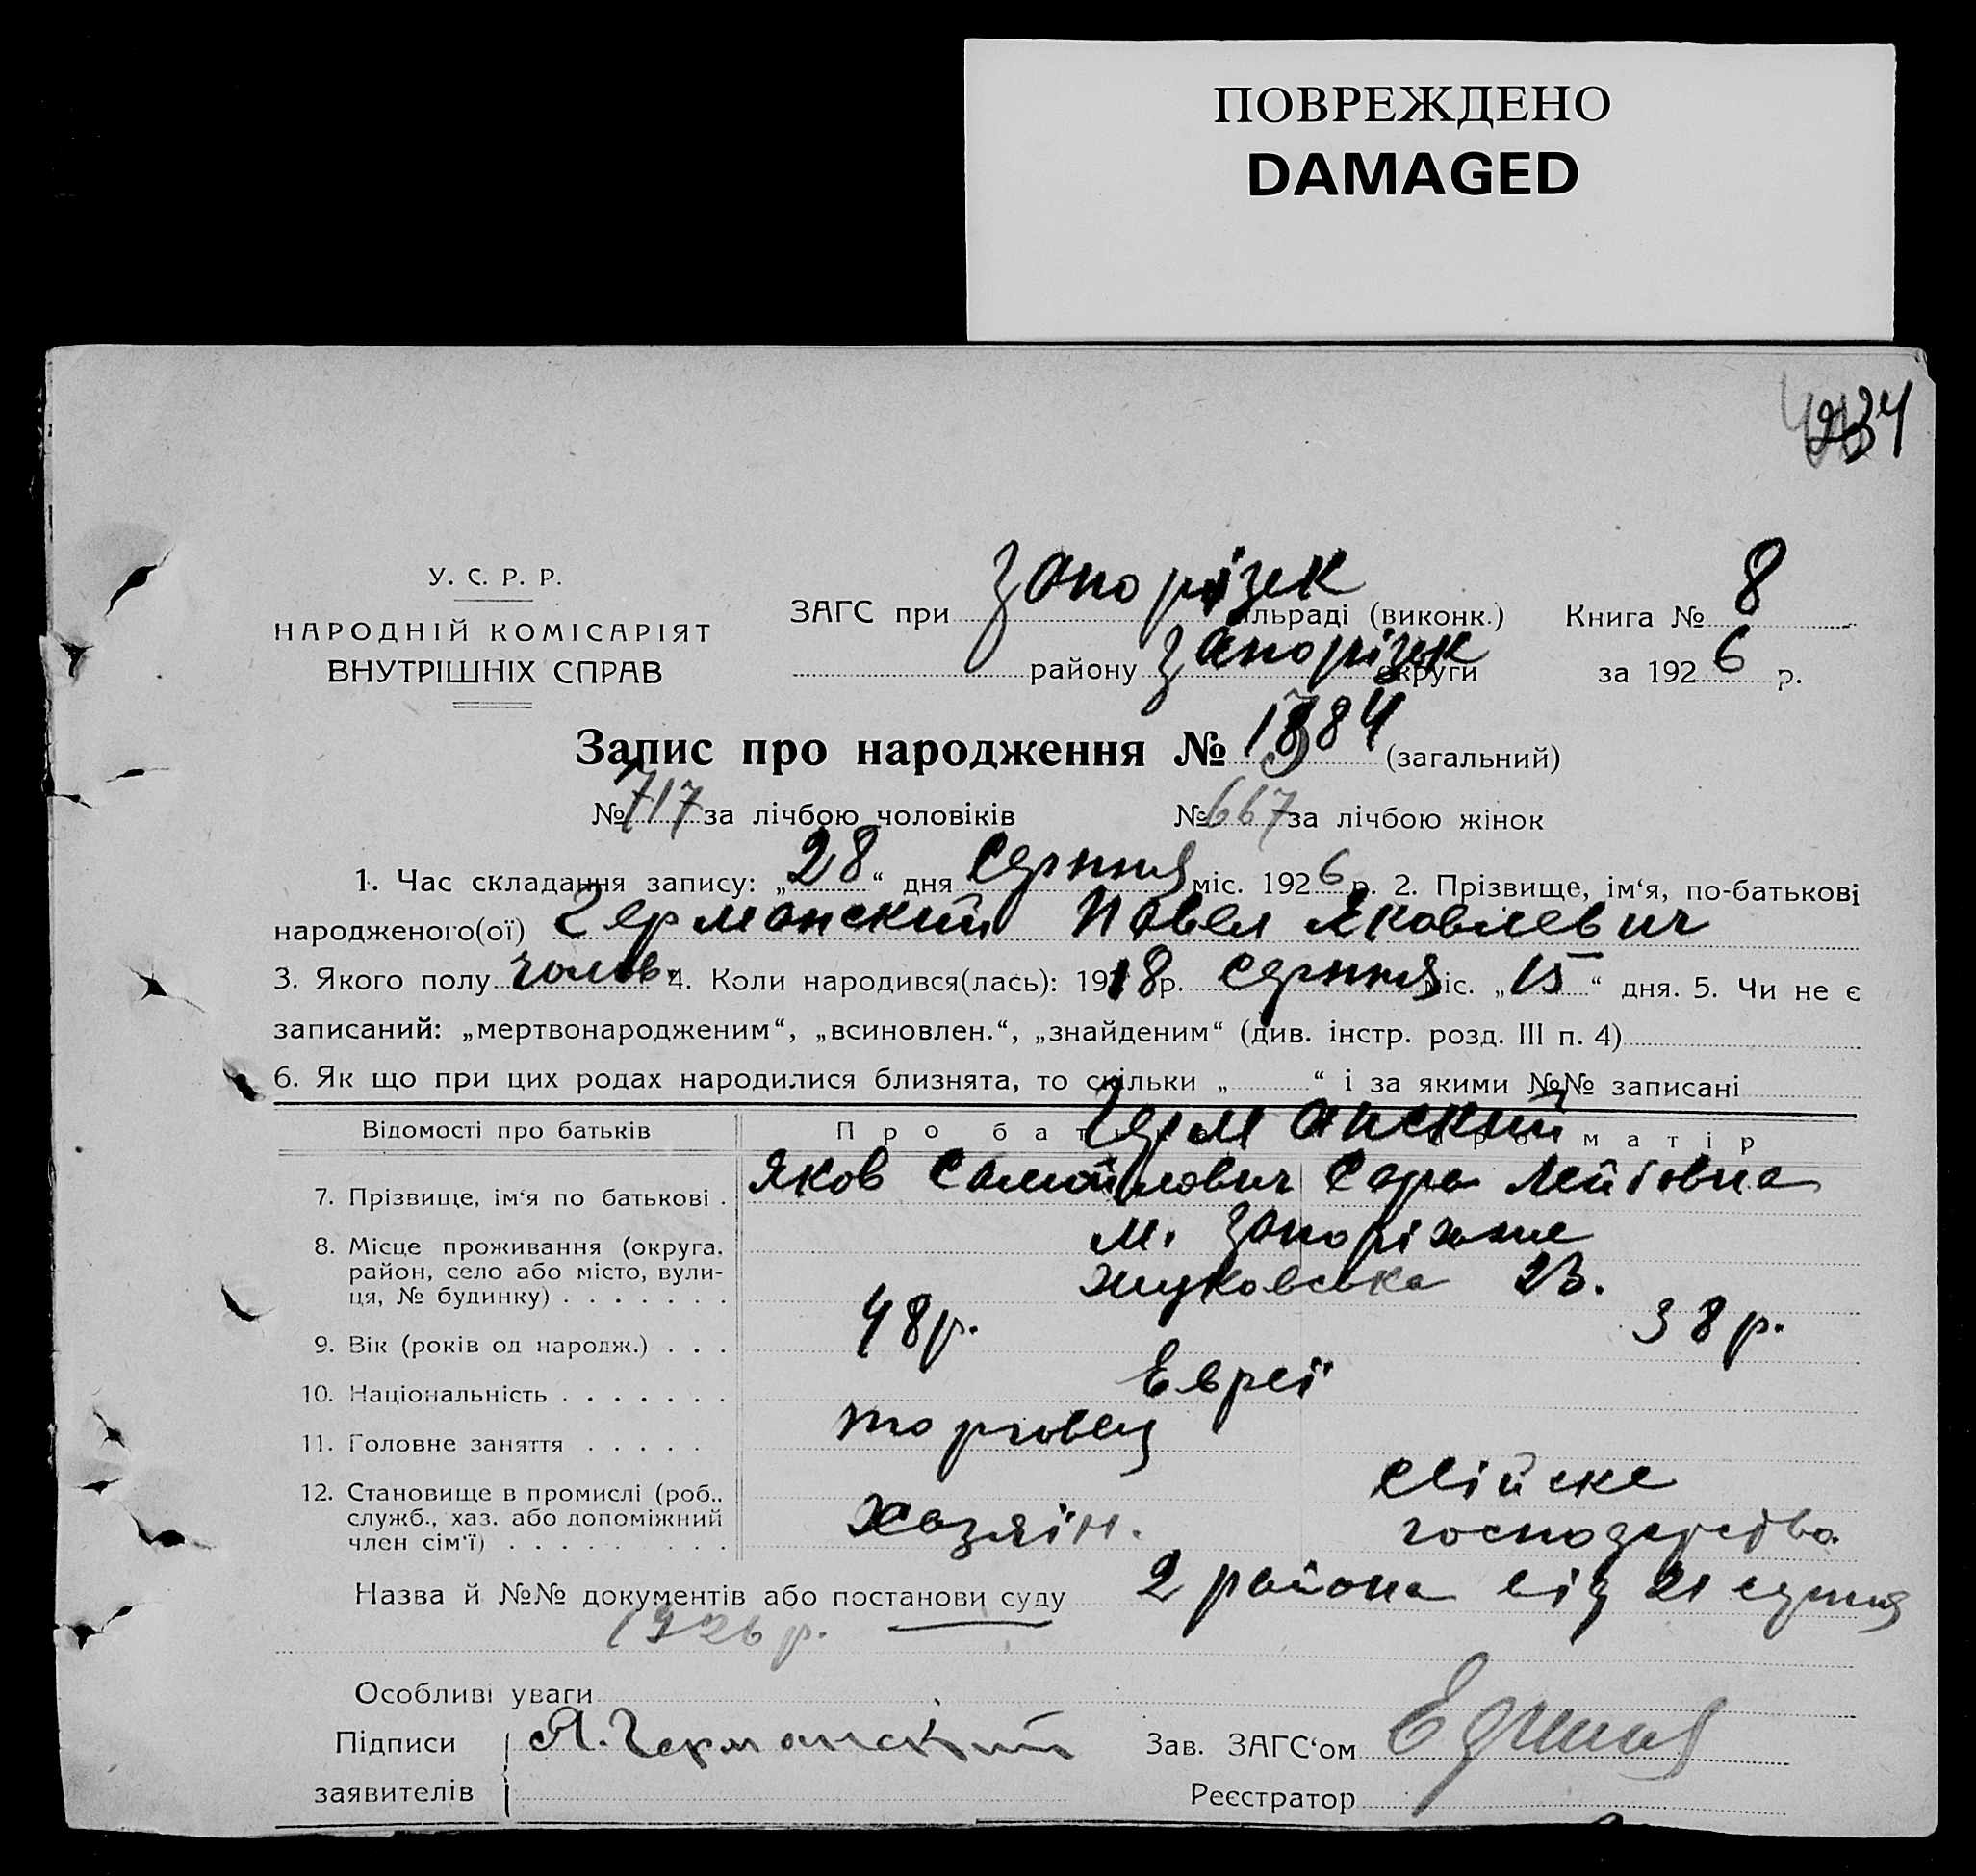 ПОВРЕЖДЕНО
DAMAGED
234
У. С. Р. Р.
НАРОДНІЙ КОМІСАРІЯТ
ВНУТРІШНІХ СПРАВ
ЗАГС при Запорізек ільраді (виконк.) Книга № 8
району Запорізек округи за 1926 р.
Запис про народження № 1384 (загальний)
№ 717 за лічбою чоловіків № 667 за лічбою жінок
1. Час складання запису: „28“ дня Серпня міс. 1926 р. 2. Прізвище, ім‘я, по-батькові
народженого(ої) Германский Павел Яковлевич
3. Якого полу чолов. 4. Коли народився(лась): 1918 р. Серпня міс. „15“ дня. 5. Чи не є
записаний: „мертвонародженим“, „всиновлен.“, „знайденим“ (див. інстр. розд. III п. 4)
6. Як що при цих родах народилися близнята, то скільки „ “ і за якими №№ записані
Відомості про батьків Про бат Германский матір
7. Прізвище, ім‘я по батькові . Яков Самойлович Сара Лейбовна
8. Місце проживання (округа, район, село або місто, вулиця, № будинку) . . . . . . . м. Запоріжже
Жуковська 23.
9. Вік (років од народж.) . . . 48 р. 38 р.
10. Національність . . . . . . . Евреї
11. Головне заняття . . . . . торговец
12. Становище в промислі (роб., служб., хаз. або допоміжний член сім‘ї) Хазяїн. господарство
Назва й №№ документів або постанови суду 2 района від 21 серпня
1926 р.
Особливі уваги
Підписи заявителів Я. Германский Зав. ЗАГС‘ом
Реєстратор